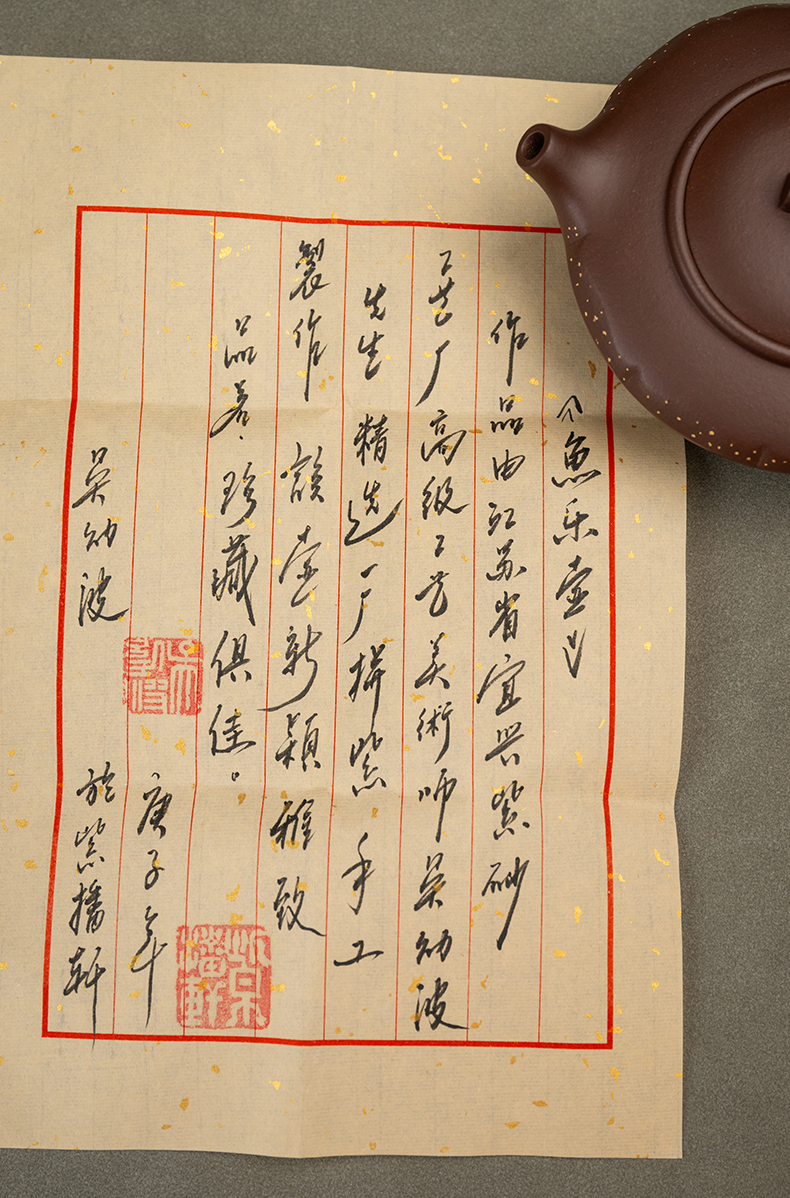 《魚乐壶》
作品由江苏省宜兴紫砂
工艺厂高级工艺美術师吴幼波
先生精选一厂拼紫.手工
製作該壶新颖雅致
品茗.珍藏俱佳。
庚子年
吴幼波 於紫播轩